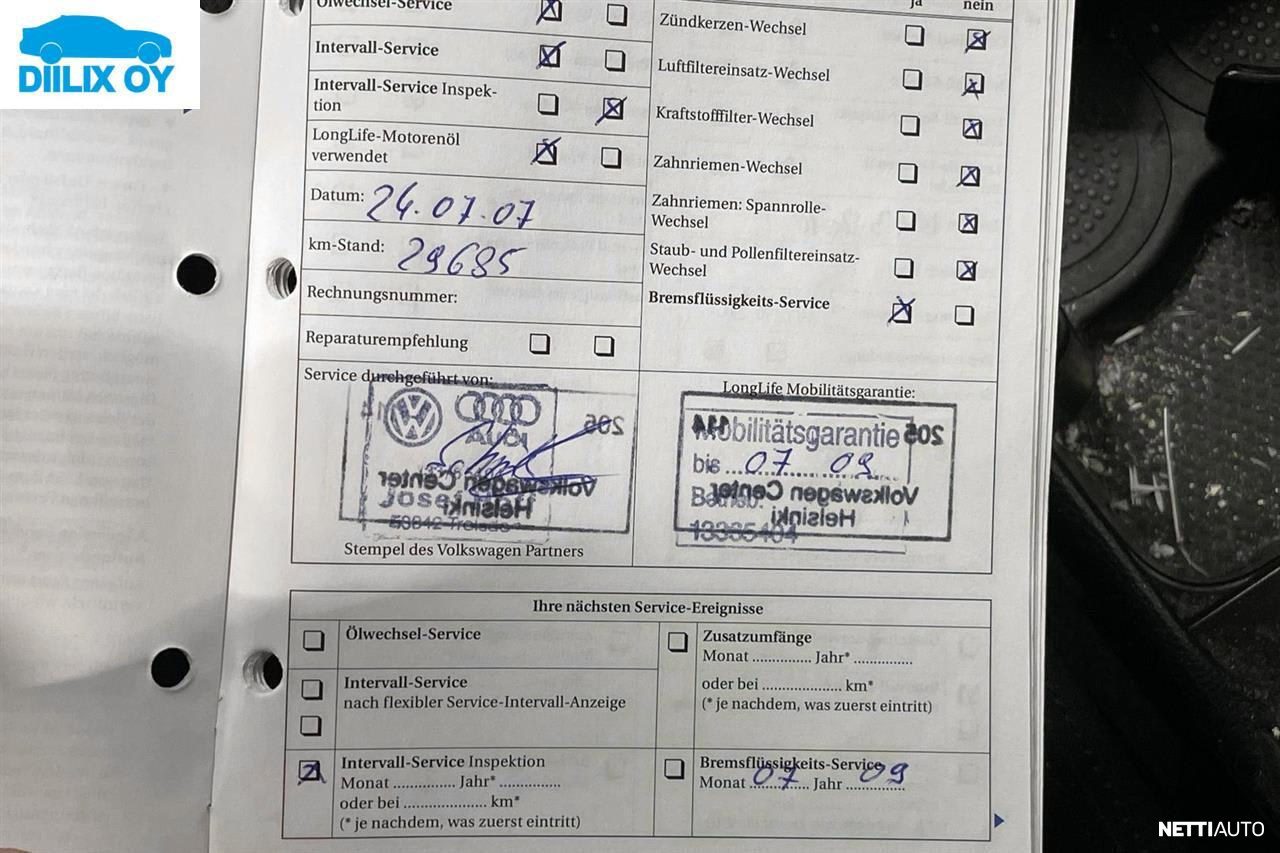 DIILIX OY
Ölwechsel-Service
Intervall-Service
Intervall-Service Inspek-
tion
LongLife-Motorenöl
verwendet
Datum: 24.07.07
km-Stand: 29685
Rechnungsnummer:
Reparaturempfehlung
ja nein
Zündkerzen-Wechsel
Luftfiltereinsatz-Wechsel
Kraftstofffilter-Wechsel
Zahnriemen-Wechsel
Zahnriemen: Spannrolle-
Wechsel
Staub- und Pollenfiltereinsatz-
Wechsel
Bremsflüssigkeits-Service
Service durchgeführt von:
Audi
205
Volkswagen Center
Helsinki
Stempel des Volkswagen Partners
LongLife Mobilitätsgarantie:
Mobilitätsgarantie
205
bis 07 09
Volkswagen Center
Betrieb:
Helsinki
Ihre nächsten Service-Ereignisse
Ölwechsel-Service
Intervall-Service
nach flexibler Service-Intervall-Anzeige
Intervall-Service Inspektion
Monat ............... Jahr* ...............
oder bei .................... km*
(* je nachdem, was zuerst eintritt)
Zusatzumfänge
Monat ............... Jahr* ...............
oder bei .................... km*
(* je nachdem, was zuerst eintritt)
Bremsflüssigkeits-Service
Monat 07 Jahr 09
NETTIAUTO